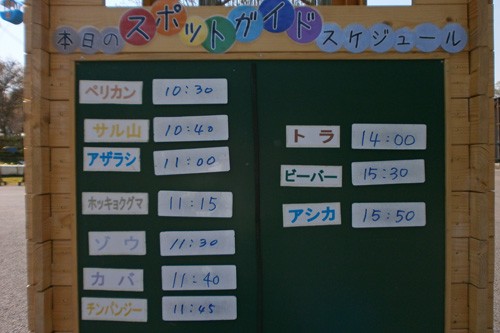 本日のスポットガイドスケジュール
ペリカン 10:30
サル山 10:40
アザラシ 11:00
ホッキョクグマ 11:15
ゾウ 11:30
カバ 11:40
チンパンジー 11:45
トラ 14:00
ビーバー 15:30
アシカ 15:50